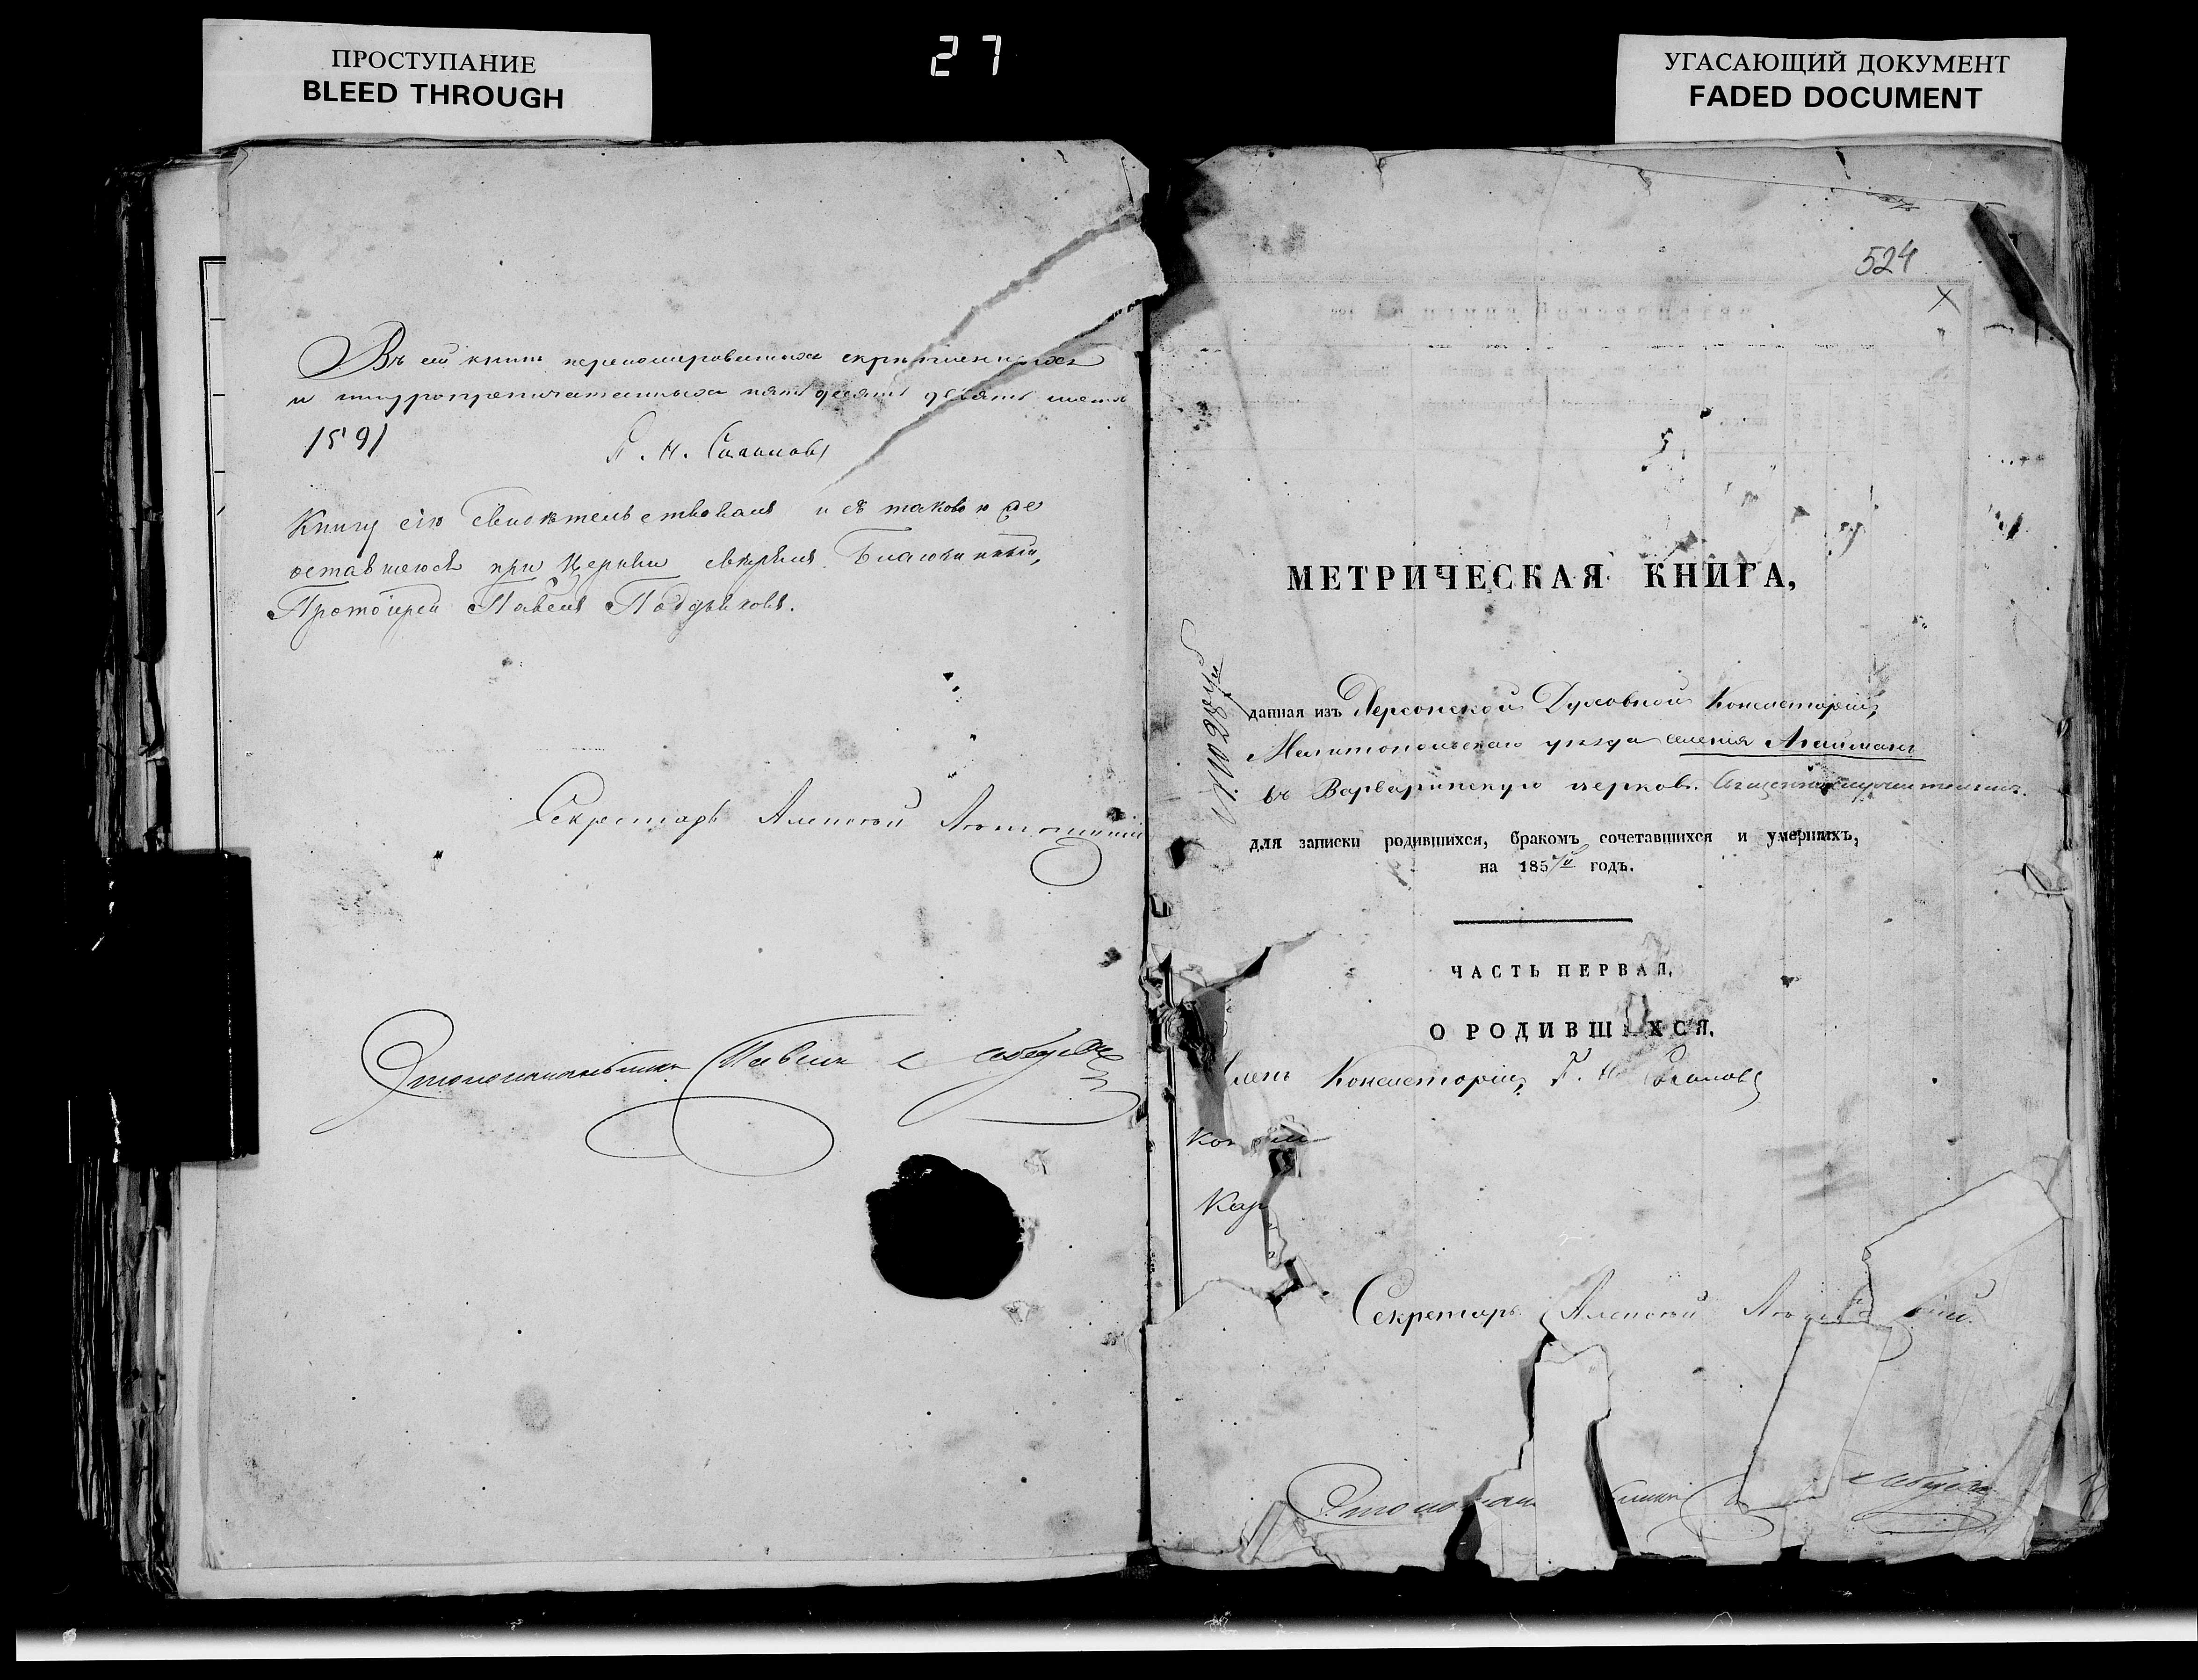 ПРОСТУПАНИЕ
BLEED THROUGH
27
УГАСАЮЩИЙ ДОКУМЕНТ
FADED DOCUMENT
Въ сей книгѣ перенумерованныхъ скрѣпленныхъ
и шнуропрепечатанныхъ пятьдесятъ девять листовъ
/59/
Книгу сію свидѣтельствовалъ и съ таковою же
оставшеюся при Церкви свѣрялъ Благочинный,
Протоіерей Павелъ Поддубковъ.
Секретарь Алексѣй
Столоначальникъ Павелъ
524
МЕТРИЧЕСКАЯ КНИГА,
данная изъ Херсонской Духовной Консисторіи,
Мелитопольскаго уѣзда селенія Агайманъ
въ Варваринскую церковь.
для записки родившихся, бракомъ сочетавшихся и умершихъ,
на 185 годъ.
ЧАСТЬ ПЕРВАЯ,
О РОДИВШ ХСЯ.
Консисторіи,
Секретарь Алексѣй